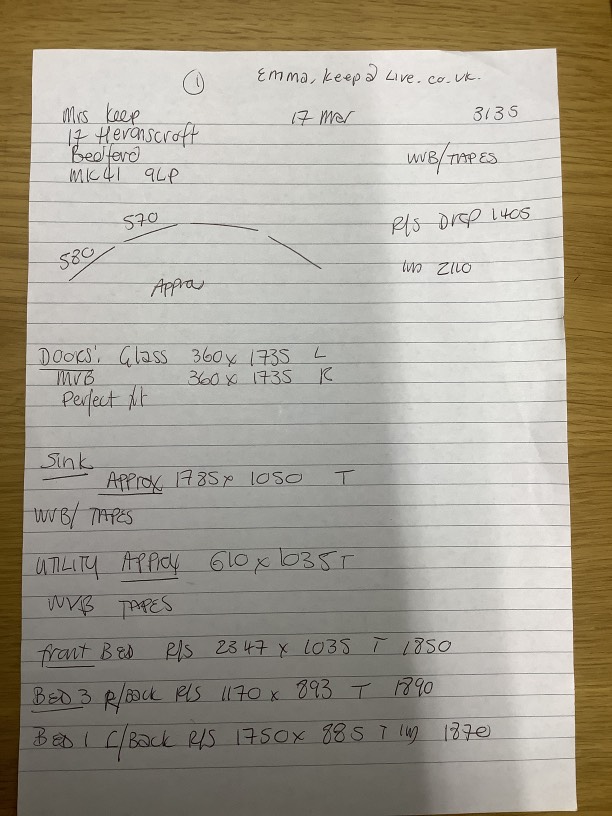 1 Emma.Keep@Live.co.uk.
Mrs Keep 17 Mar 3135
17 Heronscroft
Bedford WVB/TAPES
MK41 9LP
570 R/S DROP 1405
580 1W 2110
Approx
DOORS: Glass 360 x 1735 L
MVB 360 x 1735 R
Perfect fit
Sink
APPROX 1785 x 1050 T
WVB/ TAPES
UTILITY APPROX 610 x 1035 T
WVB TAPES
front BED R/S 2347 x 1035 T 1850
BED 3 R/Back R/S 1170 x 893 T 1890
BED 1 L/Back R/S 1750 x 885 T 1870